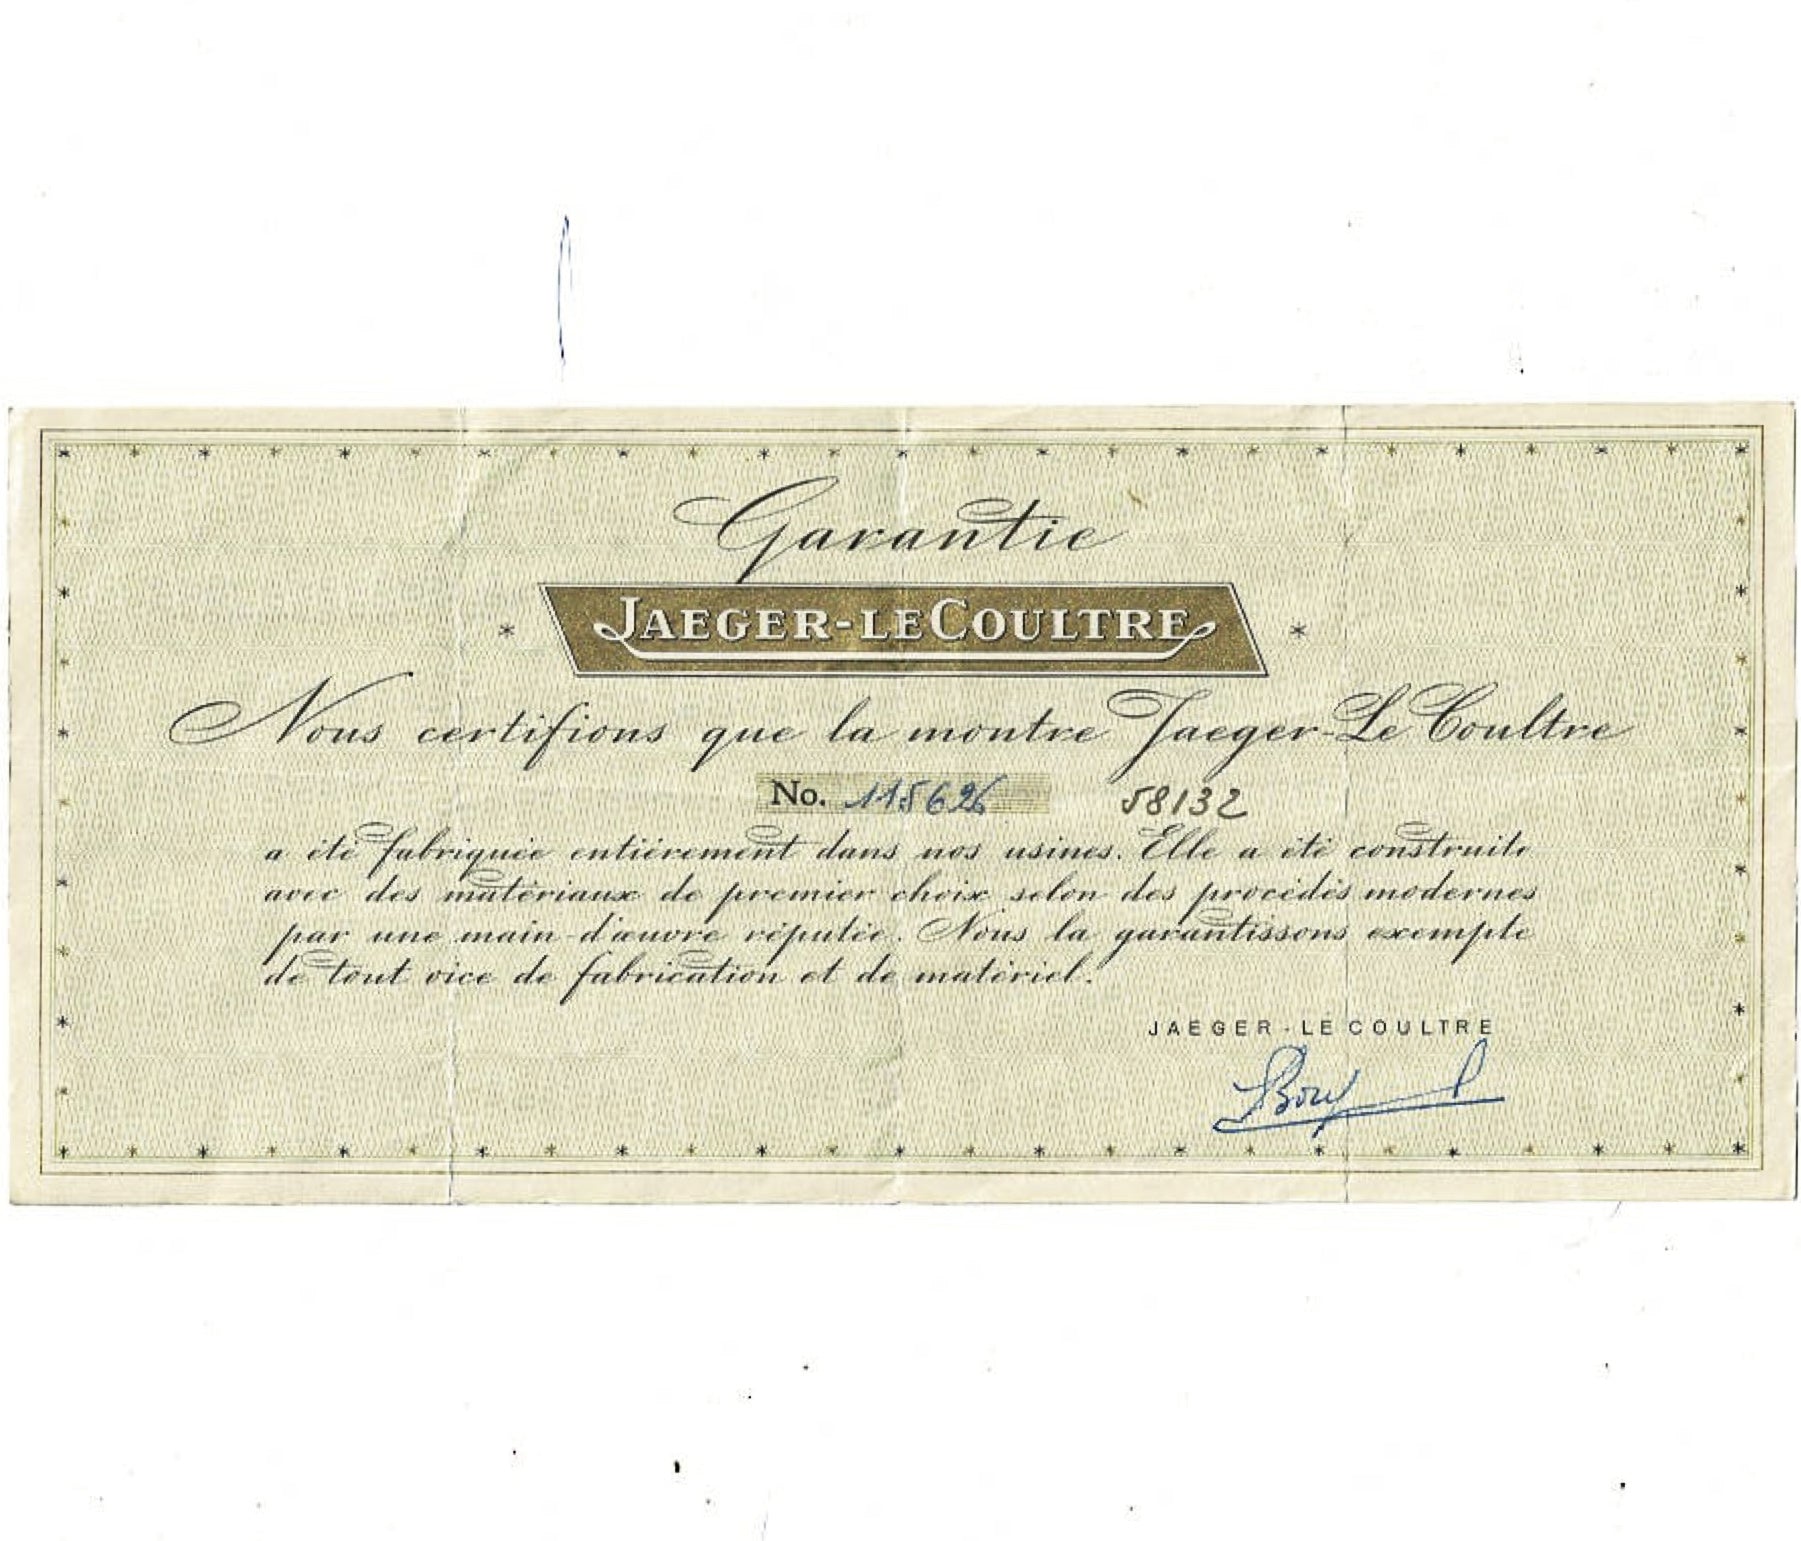 Garantie
JAEGER-LECOULTRE
Nous certifions que la montre Jaeger-LeCoultre
No. 115626 58132
a été fabriquée entièrement dans nos usines. Elle a été construite
avec des matériaux de premier choix selon des procédés modernes
par une main-d'œuvre réputée. Nous la garantissons exempte
de tout vice de fabrication et de matériel.
JAEGER-LECOULTRE